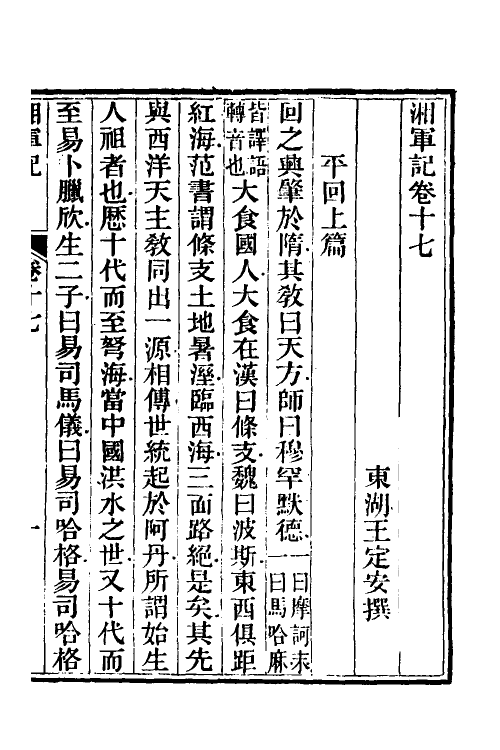 湘軍記卷十七
東湖王定安撰
平回上篇
回之興肇於隋其敎曰天方師曰穆罕默德一曰摩訶末一曰馬哈麻
皆譯語轉音也大食國人大食在漢曰條支魏曰波斯東西俱距
紅海范書謂條支土地暑溼臨西海三面路絕是矣其先
與西洋天主敎同出一源相傳世統起於阿丹所謂始生
人祖者也歷十代而至弩海當中國洪水之世又十代而
至易卜臘欣生二子曰易司馬儀曰易司哈格易司哈格
湘軍記 卷十七 一